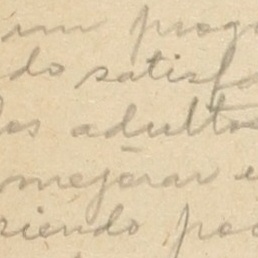 im prog
do satisfa
los adultos
mejorar e
riendo poc